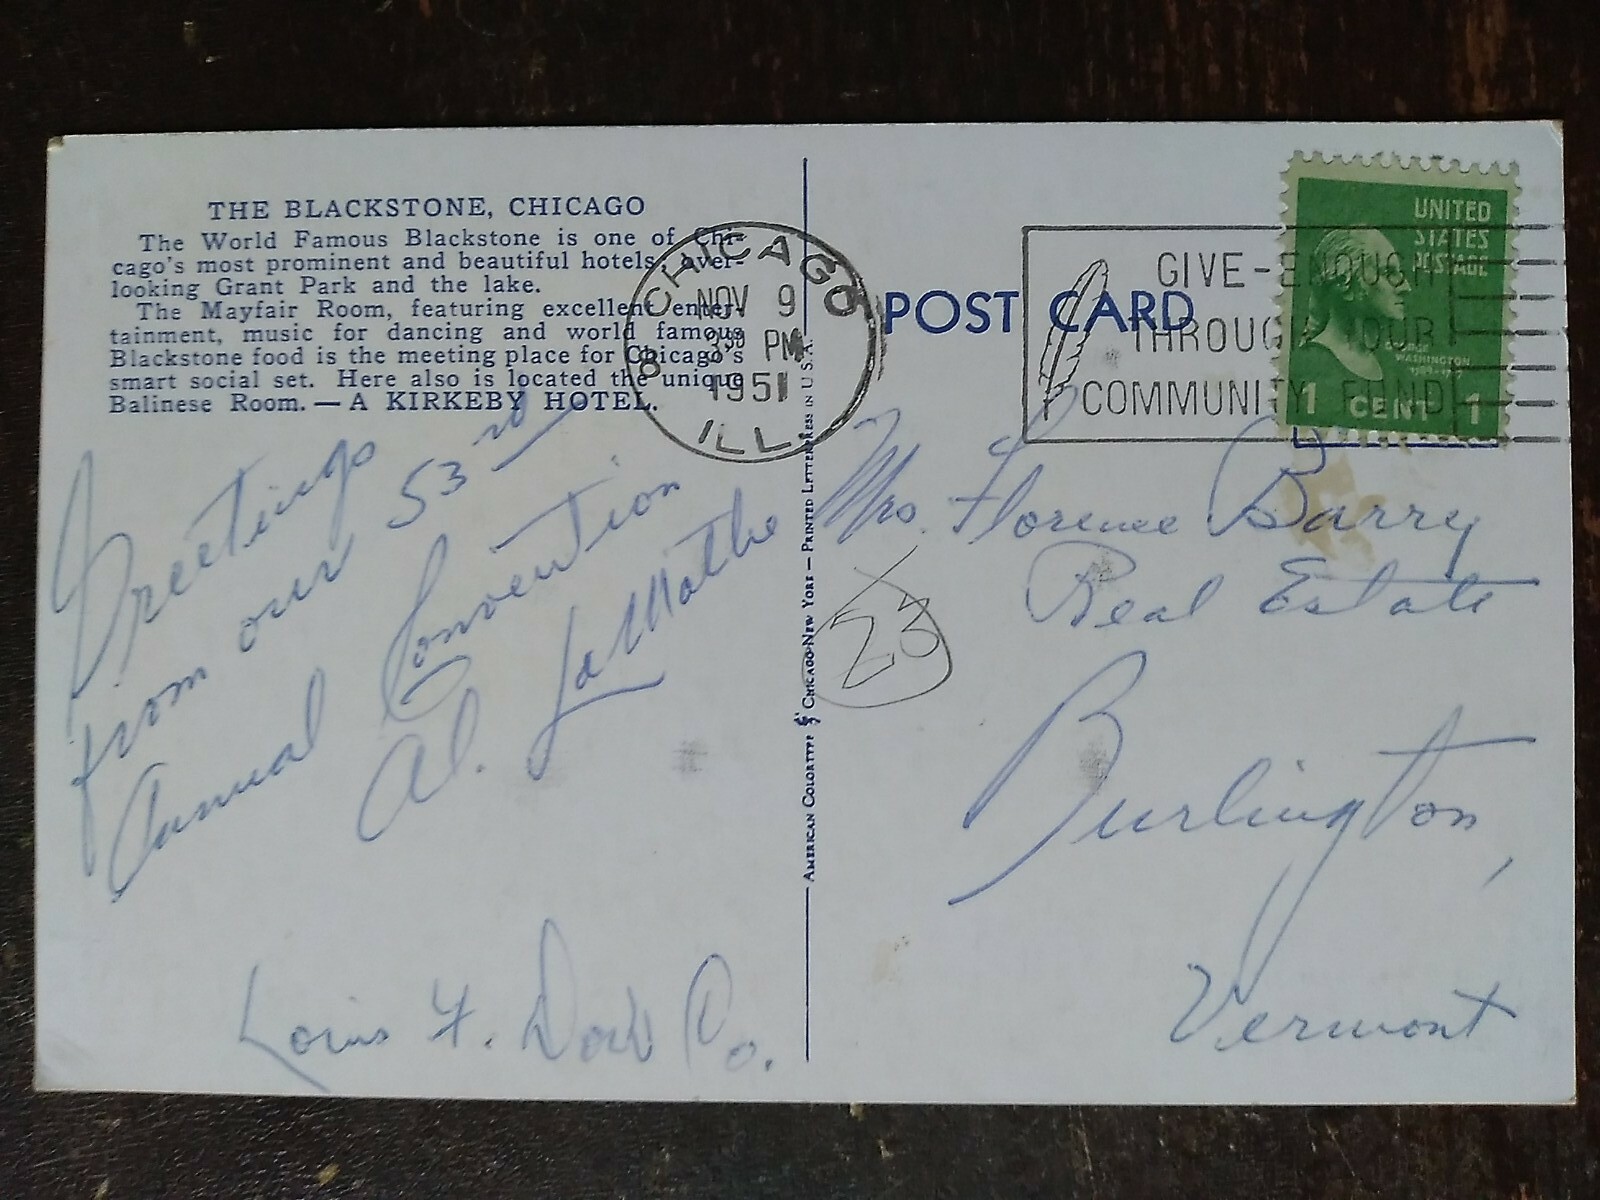 THE BLACKSTONE, CHICAGO
The World Famous Blackstone is one of Chi-
cago's most prominent and beautiful hotels, over-
looking Grant Park and the lake.
The Mayfair Room, featuring excellent enter-
tainment, music for dancing and world famous
Blackstone food is the meeting place for Chicago's
smart social set. Here also is located the unique
Balinese Room. — A KIRKEBY HOTEL.
Greetings
from our 53rd
Annual Convention
Al. LaMathe
Louis F. Dow Co.
AMERICAN COLORTYPE CHICAGO-NEW YORK — PRINTED LETTERPRESS IN U.S.A.
CHICAGO
NOV 9
330 PM
1951
8
ILL.
POST CARD
GIVE-ENOUGH
THROUGH YOUR
COMMUNITY FUND
UNITED
STATES
POSTAGE
GEORGE
WASHINGTON
1 CENT 1
Mrs. Florence Barry
Real Estate
23
Burlington,
Vermont